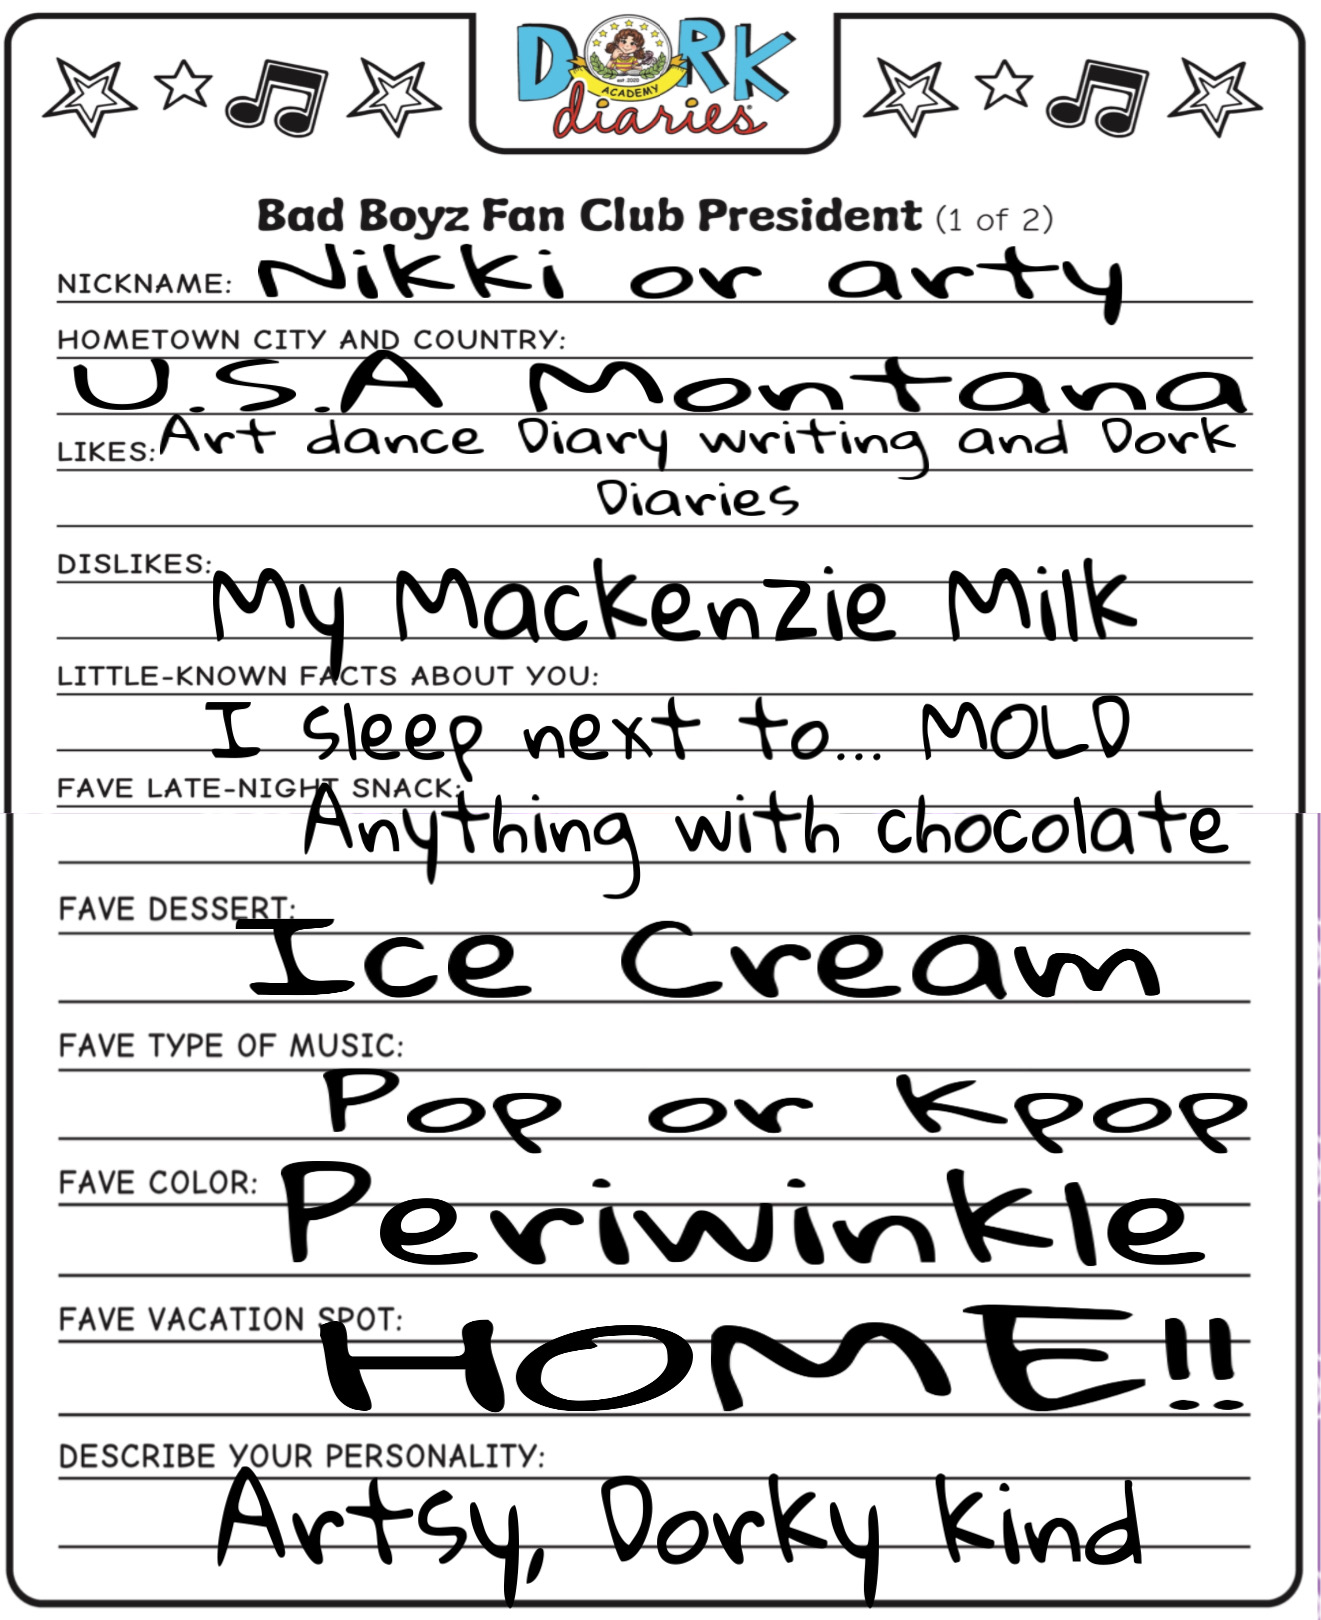 DORK
est 2020
ACADEMY
diaries
Bad Boyz Fan Club President (1 of 2)
NICKNAME: Nikki or arty
HOMETOWN CITY AND COUNTRY:
U.S.A Montana
LIKES: Art dance Diary writing and Dork
Diaries
DISLIKES:
My Mackenzie Milk
LITTLE-KNOWN FACTS ABOUT YOU:
I sleep next to... MOLD
FAVE LATE-NIGHT SNACK:
Anything with chocolate
FAVE DESSERT:
Ice Cream
FAVE TYPE OF MUSIC:
Pop or Kpop
FAVE COLOR: Periwinkle
FAVE VACATION SPOT:
HOME!!
DESCRIBE YOUR PERSONALITY:
Artsy, Dorky kind